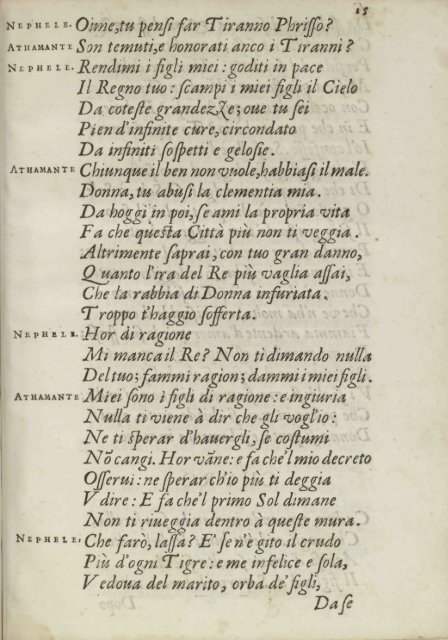 15
NEPHELE. Oime, tu pensi far Tiranno Phrisso?
ATHAMANTE Son temuti, e honorati anco i Tiranni?
NEPHELE. Rendimi i figli miei: goditi in pace
Il Regno tuo: scampi i miei figli il Cielo
Da coteste grandezze; oue tu sei
Pien d'infinite cure, circondato
Da infiniti sospetti e gelosie.
ATHAMANTE Chiunque il ben non vuole, habbiasi il male.
Donna, tu abusi la clementia mia.
Da hoggi in poi, se ami la propria vita
Fa che questa Città più non ti veggia.
Altrimente saprai, con tuo gran danno,
Quanto l'ira del Re più vaglia assai,
Che la rabbia di Donna infuriata.
Troppo t'haggio sofferta.
NEPHELE. Hor di ragione
Mi manca il Re? Non ti dimando nulla
Del tuo; fammi ragion; dammi i miei figli.
ATHAMANTE Miei sono i figli di ragione: e ingiuria
Nulla ti viene à dir che gli voglio:
Ne ti sperar d'hauergli, se costumi
Nõ cangi. Hor vãne: e fa che'l mio decreto
Osserui: ne sperar ch'io più ti deggia
Vdire: E fa che'l primo Sol dimane
Non ti riueggia dentro à queste mura.
NEPHELE. Che farò, lassa? E' se n'è gito il crudo
Più d'ogni Tigre: e me infelice e sola,
Vedoua del marito, orba de' figli,
Da se